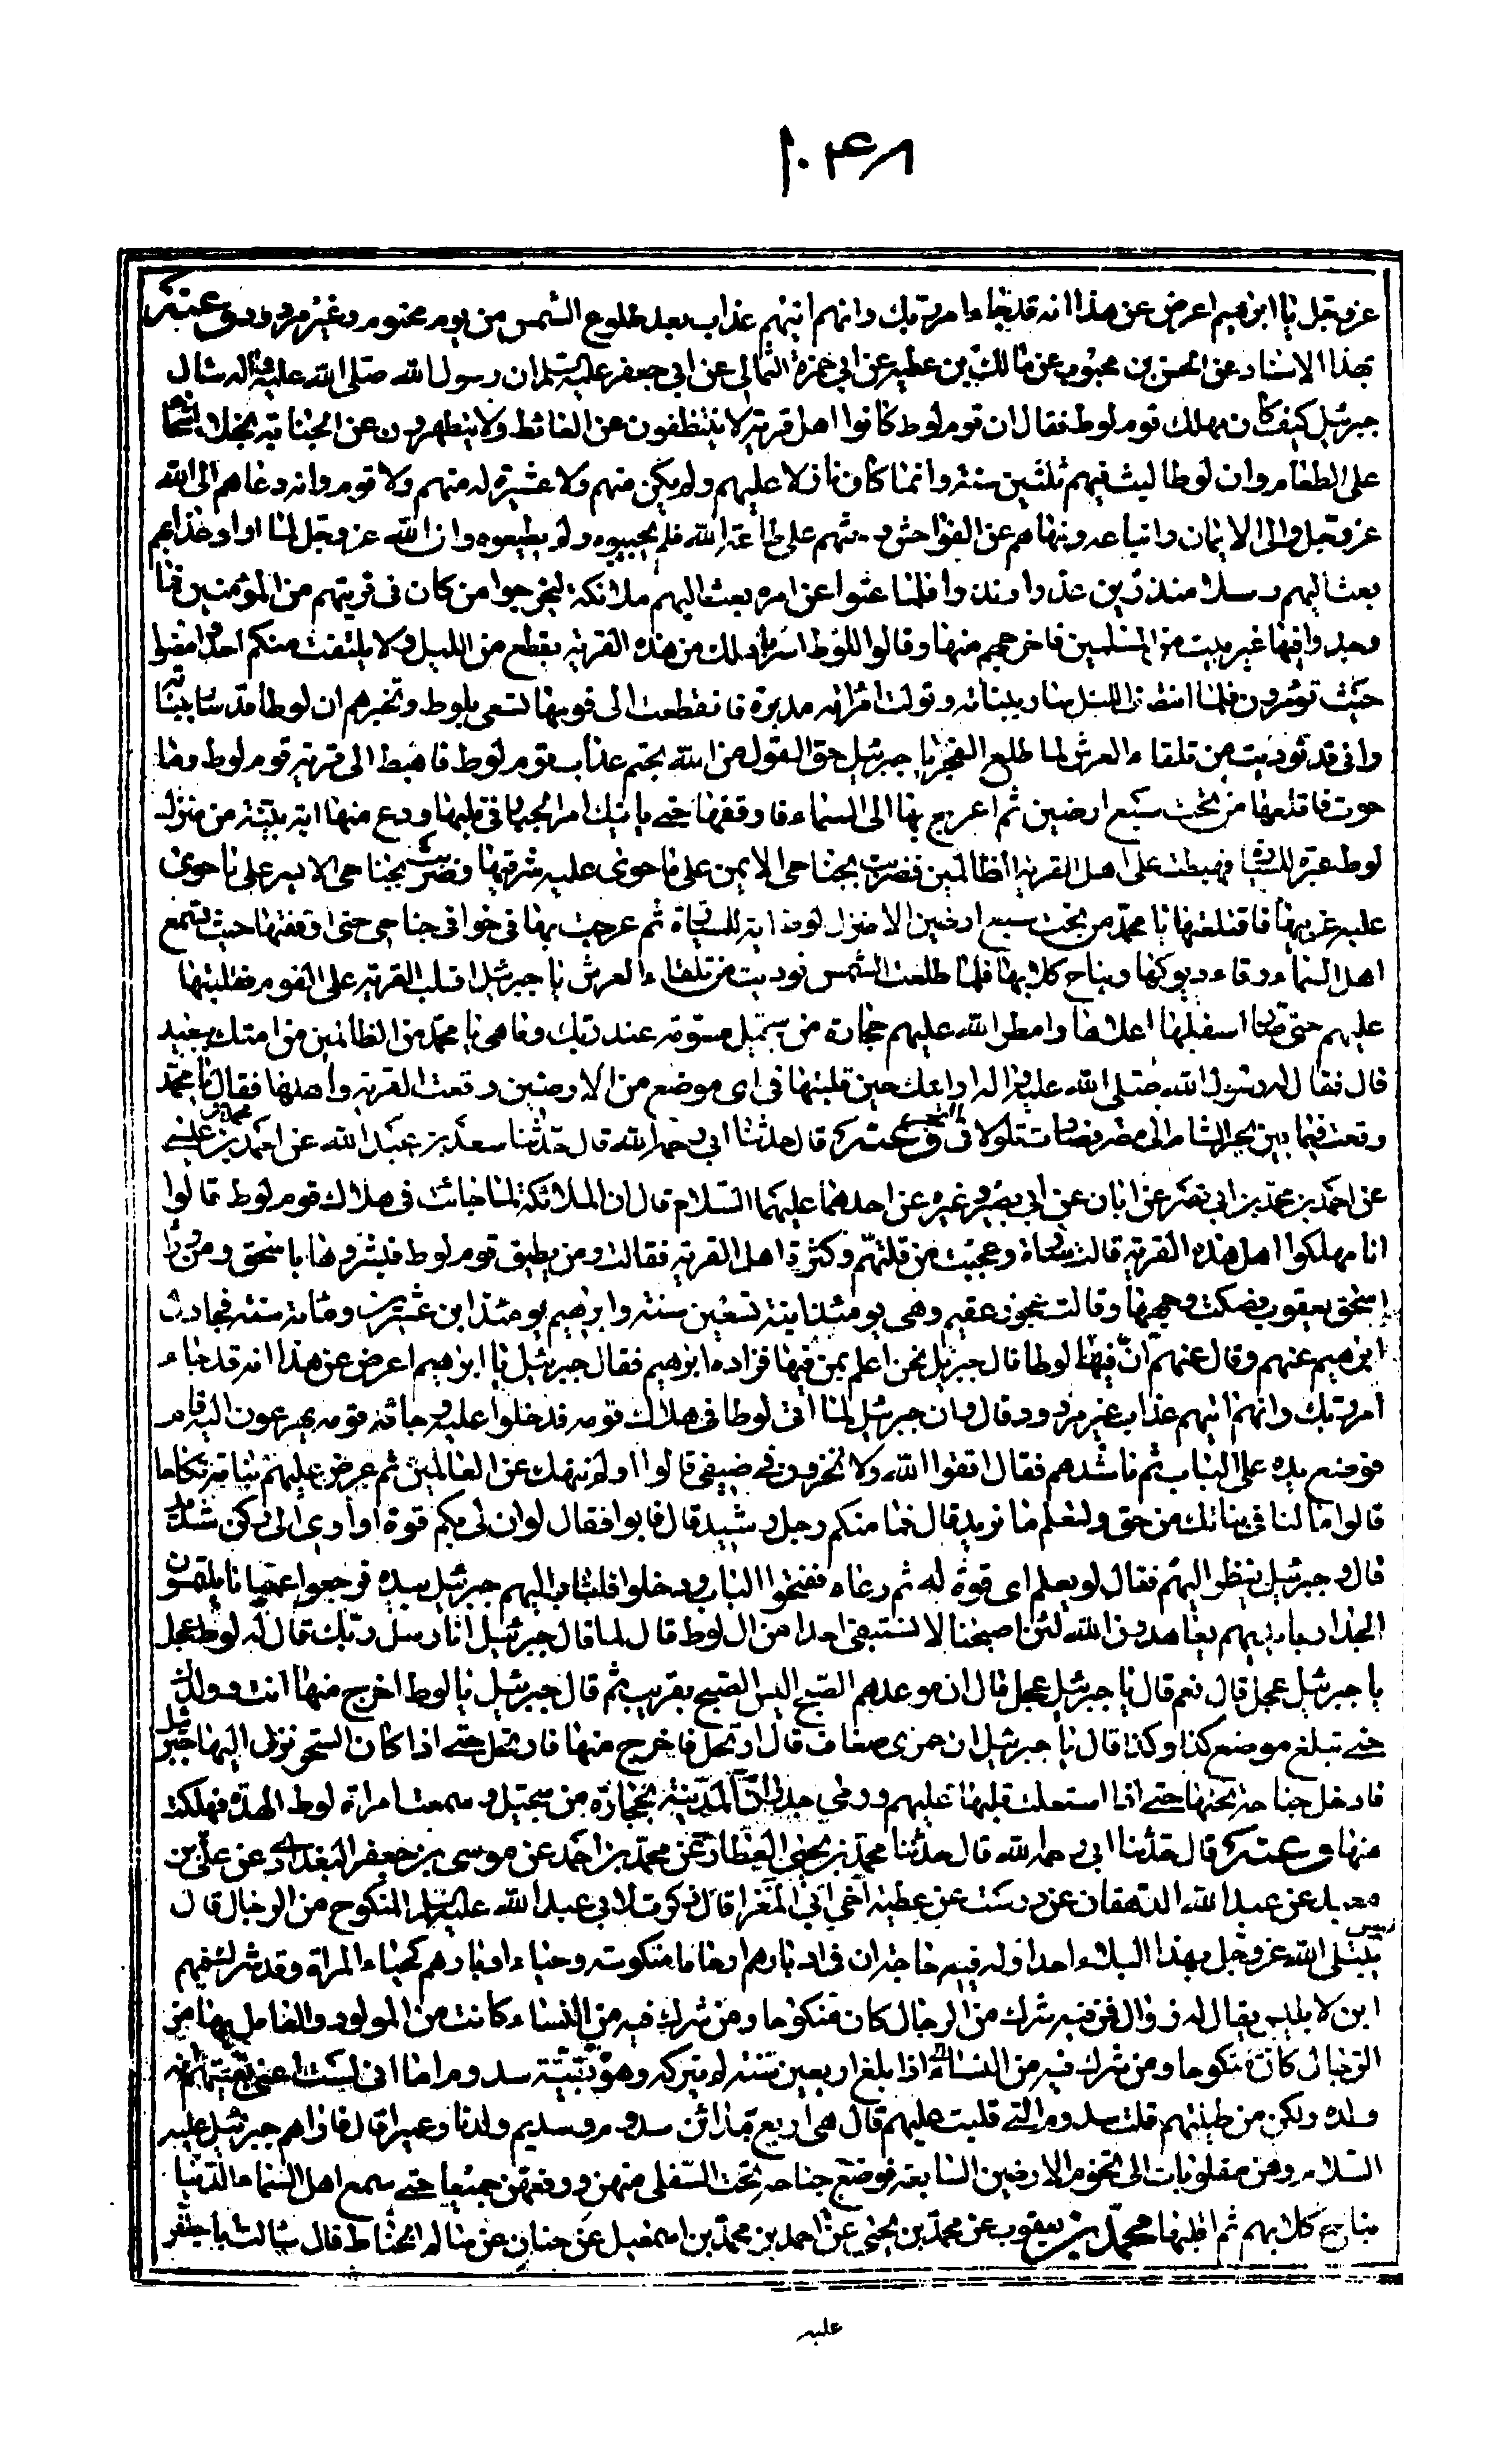 ١٠٤٨
عز وجل يا ابرهيم اعرض عن هذا انه قد جاء امر ربك وانهم اتيهم عذاب بعد طلوع الشمس من يوم محتوم غير مردود وعنه
بهذا الاسناد عن الحسن بن محبوب عن مالك بن عطيه عن ابي حمزة الثمالي عن ابي جعفر عليه السلم ان رسول الله صلى الله عليه واله سال
جبرئيل كيف كان مهلك قوم لوط فقال ان قوم لوط كانوا اهل قرية لا يتنظفون من الغائط ولا يتطهرون من الجنابة بخلاء اشحا
على الطعام وان لوطا لبث فيهم ثلثين سنة وانما كان نازلا عليهم ولم يكن منهم ولا عشيرة له منهم ولا قوم وانه دعاهم الى الله
عز وجل والى الايمان واتباعه ونهاهم عن الفواحش وحثهم على طاعة الله فلم يجيبوه ولم يطيعوه وان الله عز وجل لما اراد عذابهم
بعث اليهم رسلا منذرين عذرا ونذرا فلما عتوا عن امره بعث اليهم ملائكة ليخرجوا من كان في قريتهم من المؤمنين فما
وجدوا فيها غير بيت من المسلمين فاخرجهم منها وقالوا للوط اسر باهلك من هذه القرية بقطع من الليل ولا يلتفت منكم احد وامضوا
حيث تؤمرون فلما انتصف الليل سار ببناته وتولت امراته مدبرة فانقطعت الى قومها تسعى بلوط وتخبرهم ان لوطا قد سار ببناته
واني قد نوديت من تلقاء العرش لما طلع الفجر يا جبرئيل حق القول من الله بحتم عذاب قوم لوط فاهبط الى قرية قوم لوط وما
حوت فاقلعها من تحت سبع ارضين ثم اعرج بها الى السماء فاوقفها حتى ياتيك امر الجبار في قلبها ودع منها اية بينة من منزل
لوط عبرة للسيارة فهبطت على اهل القرية الظالمين فضربت بجناحي الايمن على ما حوى عليه شرقيها وضربت بجناحي الايسر على ما حوى
عليه غربيها فاقتلعتها يا محمد من تحت سبع ارضين الا منزل لوط اية للسيارة ثم عرجت بها في خوافي جناحي حتى اوقفتها حيث يسمع
اهل السماء زقاء ديوكها ونباح كلابها فلما طلعت الشمس نوديت من تلقاء العرش يا جبرئيل اقلب القرية على القوم فقلبتها
عليهم حتى صار اسفلها اعلاها وامطر الله عليهم حجارة من سجيل مسومة عند ربك وما هي يا محمد من الظالمين من امتك ببعيد
قال فقال له رسول الله صلى الله عليه واله اراعك حين قلبتها في اى موضع من الارضين وقعت القرية واهلها فقال يا محمد
وقعت فيما بين بحر الشام الى مصر فصارت تلولا في البحر وعنه قال حدثنا ابي رحمه الله قال حدثنا سعد بن عبد الله عن احمد بن محمد بن عيسى
عن احمد بن محمد بن ابي نصر عن ابان عن ابي بصير وغيره عن احدهما عليهما السلام قال ان الملائكة لما جائت في هلاك قوم لوط قالوا
انا مهلكوا اهل هذه القرية قالت سارة وعجبت من قلتهم وكثرة اهل القرية فقالت ومن يطيق قوم لوط فبشروها باسحق ومن وراء
اسحق يعقوب فصكت وجهها وقالت عجوز عقيم وهي يومئذ ابنة تسعين سنة وابرهيم يومئذ ابن عشرين ومائة سنة فجادل
ابرهيم عنهم وقال عنهم ان فيها لوطا قال جبرئيل نحن اعلم بمن فيها فزاده ابرهيم فقال جبرئيل يا ابرهيم اعرض عن هذا انه قد جاء
امر ربك وانهم اتيهم عذاب غير مردود قال وان جبرئيل لما اتى لوطا في هلاك قومه فدخلوا عليه وجائه قومه يهرعون اليه قام
فوضع يده على الباب ثم ناشدهم فقال اتقوا الله ولا تخزون في ضيفي قالوا اولم ننهك عن العالمين ثم عرض عليهم بناته نكاحا
قالوا ما لنا في بناتك من حق وانك لتعلم ما نريد قال فما منكم رجل رشيد قال فابوا فقال لو ان لي بكم قوة او اوي الى ركن شديد
قال وجبرئيل ينظر اليهم فقال لو يعلم اى قوة له ثم دعاه ففتحوا الباب ودخلوا فاشار اليهم جبرئيل بيده فرجعوا عميانا يلتمسون
الجدار بايديهم يعاهدون الله لئن اصبحنا لا نستبقى احدا من ال لوط قال لما قال جبرئيل انا رسل ربك قال له لوط عجل
يا جبرئيل عجل قال نعم قال يا جبرئيل عجل قال ان موعدهم الصبح اليس الصبح بقريب ثم قال جبرئيل يا لوط اخرج منها انت وولدك
حتى تبلغ موضع كذا وكذا قال يا جبرئيل ان حمري ضعاف قال ارتحل فاخرج منها فارتحل حتى اذا كان السحر نزل اليها جبرئيل
فادخل جناحه تحتها حتى اذا استعلت قلبها عليهم ورمى جدران المدينة بحجارة من سجيل وسمعت امراة لوط الهدة فهلكت
منها وعنه قال حدثنا ابي رحمه الله قال حدثنا محمد بن يحيى العطار عن محمد بن احمد عن موسى بن جعفر البغدادي عن علي بن
معبد عن عبيد الله الدهقان عن درست عن عطية اخي ابي المغرا قال ذكرت لابي عبد الله عليه السلم المنكوح من الرجال قال
ليس يبتلى الله عز وجل بهذا البلاء احدا وله فيه حاجة ان في ادبارهم ارحاما منكوسة وحياء ادبارهم كحياء المراة وقد شرك فيهم
ابن لابليس يقال له زوال فمن فيه شرك من الرجال كان منكوحا ومن شرك فيه من النساء كانت من المولود والعامل بها من
الرجال كان منكوحا ومن شرك فيه من النساء اذا بلغ اربعين سنة لم يتركه وهو بقية سدوم اما اني لست اعنى بقيتهم انه
ولده ولكن من طينتهم قلت سدوم التي قلبت عليهم قال هي اربع مدائن سدوم وسديم ولدنا وعميرا قال فاتاهم جبرئيل عليه
السلام وهن مقلوبات الى تخوم الارضين السابعة فوضع جناحه تحت السفلى منهن ورفعهن جميعا حتى سمع اهل السماء الدنيا
نباح كلابهم ثم اقلبها محمد بن يعقوب عن محمد بن يحيى عن احمد بن محمد بن اسمعيل عن حنان عن سالم الحناط قال سالت ابا جعفر
عليه